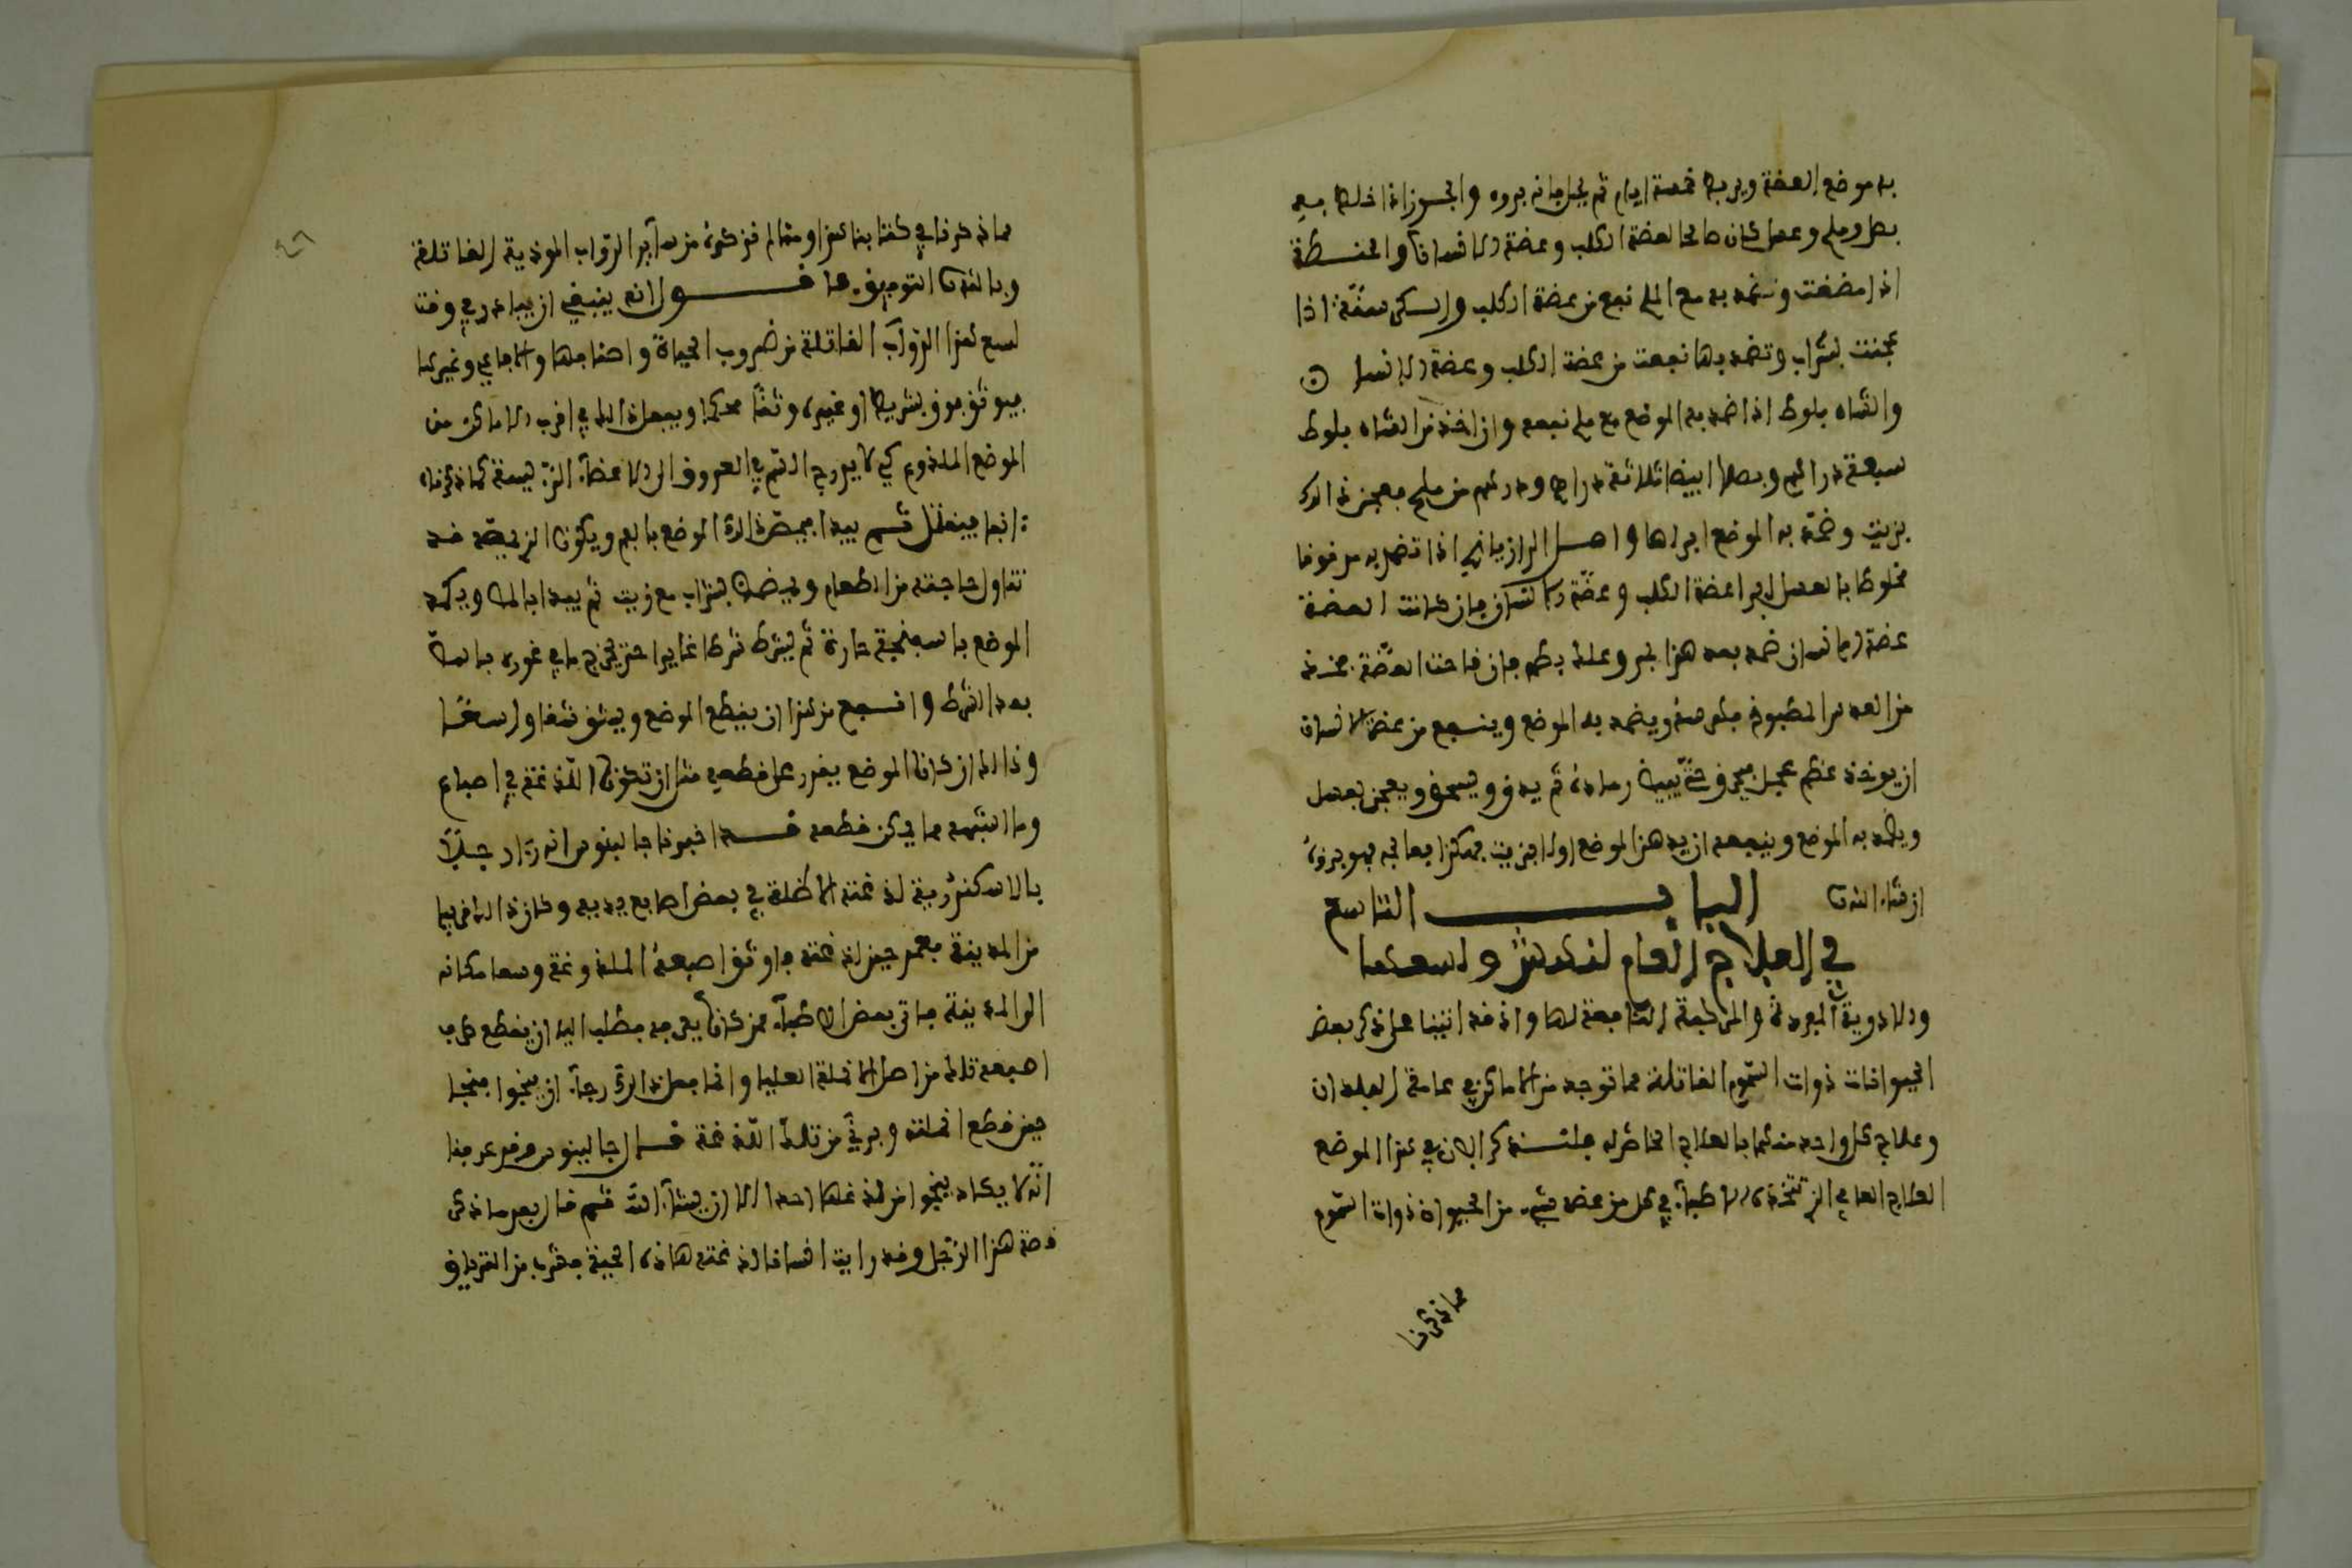 به موضع العضة ويربط خمسة ايام ثم يحل فانه يبروه والجوز اذا خلط مع
بصل وملح وعسل كان صالحا لعضة الكلب وعضة الانسان والحنطة
اذا مضغت وضمد به مع الملح نفع من عضة الكلب والسكر سنة اذا
عجنت بشراب وتضمد بها نفعت من عضة الكلب وعضة الانسان
والشاه بلوط اذا ضمد به الموضع مع ملح نفعه وان اخذ من الشاه بلوط
سبعة دراهم وبصل ابيض ثلاثة دراهم ودرهم من ملح يعجن ذالك
بزيت وضمد به الموضع ابراها واصل الرازيانج اذا تضمد به مدقوقا
مخلوطا بالعسل ابرا عضة الكلب وعضة الانسان فان كانت العضة
عضة انسان ضمد بعد هذا بخبز وعلك بطم فان قاحت العضة فخذ
من العدس المطبوخ فامرسه ويضمد به الموضع وينفع من عضة الانسان
ان يوخذ عظم عجل فيحرق حتى يبيض رماده ثم يدق ويسحق ويعجن بعسل
ويضمد به الموضع وينفعه ان يدهن الموضع اولا بزيت هكذا يعالج فهو بروه
ان شاء الله تعالى البـاب التاسع
في العلاج العام لنهش ولسعها
والادوية المفردة والمركبة النافعة لها واذ قد اتينا على ذكر بعض
الحيوانات ذوات السموم القاتلة مما توجد من الاماكن في عامة البلدان
وعلاج كل واحد منها بالعلاج الخاص له فلنذكر الان في هذا الموضع
العلاج العامي الذي تتخذه الاطباء في كل من عضه شيء من الحيوان ذوات السموم
مما ذكرنا
مما ذكرنا في كتابنا هذا ومما لم نذكره من ساير الدواب الموذية القاتلة
وبالله التوفيق فاقـــول انه ينبغي ان يبادر في وقت
لسع هذا الدواب القاتلة من ضروب الحياة واصنافها والافاعي وغيرها
فيوثق فوق بشريط او غيره وثقا محكما ويجعل ذالك في اقرب الاماكن من
الموضع الملذوع كي لا يروح السم في العروق الى الاعضاء الرئيسة كما ذكرناه
انفا فينقتل ثم يبدا فيمص ذالك الموضع بالفم ويكون الذي يمصه قد
تناول حاجته من الطعام ويتمضمض بشراب مع زيت ثم يبدا بالمص ويكمد
الموضع باسفنجة حارة ثم يشرط شرطا غايرا حتى يخرج ما في غوره بالمص
بعد الشرط وانفع من هذا ان يقطع الموضع ويشق شقا واسعا
وذالك ان كان الموضع يقدر على قطعه مثل ان تكون اللذغة في اصباع
وما اشبهه مما يمكن قطعه قـد اخبرنا جالينوس انه راى رجلا
بالاسكندرية لذغته الاكلة في بعض اصابع يديه وكان ذالك قريبا
من المدينة فعمد حين لذغته فاوثق اصبعه الملذوغة وسعا مكانه
الى المدينة فاتى بعض الاطباء ممن كان يعرفه فطلب اليه ان يقطع طرف
اصبعه تلك من اصل الانملة العليا وانما فعل ذالك رجاء ان ينجوا فنجا
حين قطع انملته وبرئ من تلك اللذغة قـال جالينوس وقد عرفنا
انه لا يكاد ينجوا من لذغها احد الا ان يشاء الله ثم قال بعد ما ذكر
قصة هذا الرجل وقد رايت انسانا لذغته هاذه الحية فشرب من الترياق